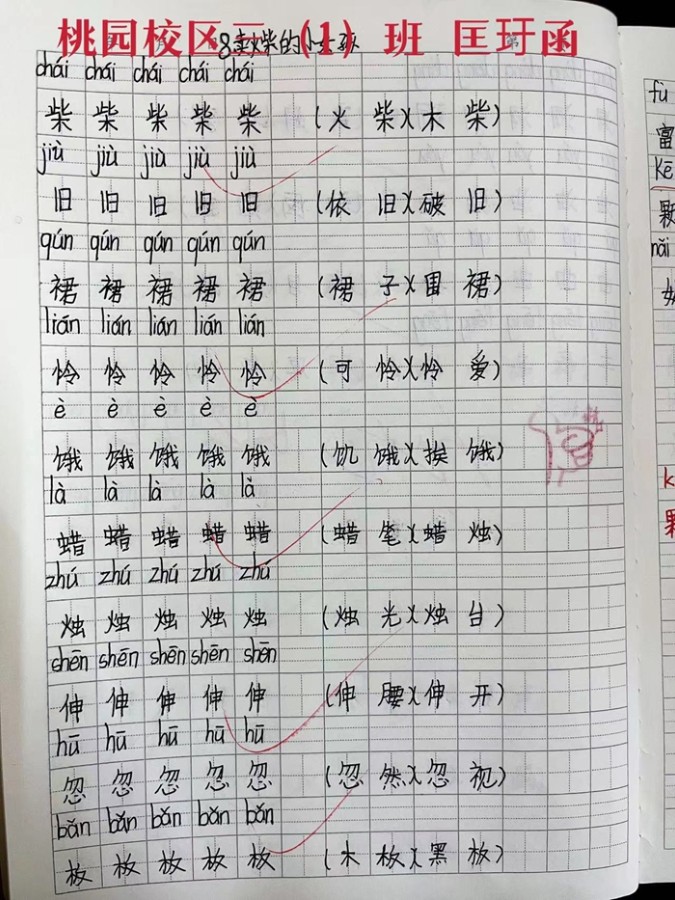 桃园校区三（1）班 匡玗函
8卖火柴的小女孩
chái chái chái chái chái
柴 柴 柴 柴 柴 (火 柴)(木 柴)
jiù jiù jiù jiù jiù
旧 旧 旧 旧 旧 (依 旧)(破 旧)
qún qún qún qún qún
裙 裙 裙 裙 裙 (裙 子)(围 裙)
lián lián lián lián lián
怜 怜 怜 怜 怜 (可 怜)(怜 爱)
è è è è è
饿 饿 饿 饿 饿 (饥 饿)(挨 饿)
là là là là là
蜡 蜡 蜡 蜡 蜡 (蜡 笔)(蜡 烛)
zhú zhú zhú zhú zhú
烛 烛 烛 烛 烛 (烛 光)(烛 台)
shēn shēn shēn shēn shēn
伸 伸 伸 伸 伸 (伸 腰)(伸 开)
hū hū hū hū hū
忽 忽 忽 忽 忽 (忽 然)(忽 视)
bǎn bǎn bǎn bǎn bǎn
板 板 板 板 板 (木 板)(黑 板)
fù
富
kē
颗
nǎi